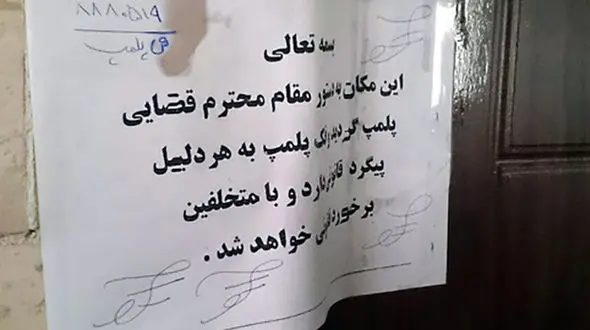 ۸۸۸۰۵۱۹
پلمپ
بسمه تعالی
این مکان به دستور مقام محترم قضایی
پلمپ گردیده وفک پلمپ به هر دلیل
پیگرد قانونی دارد و با متخلفین
برخورد قانونی خواهد شد .